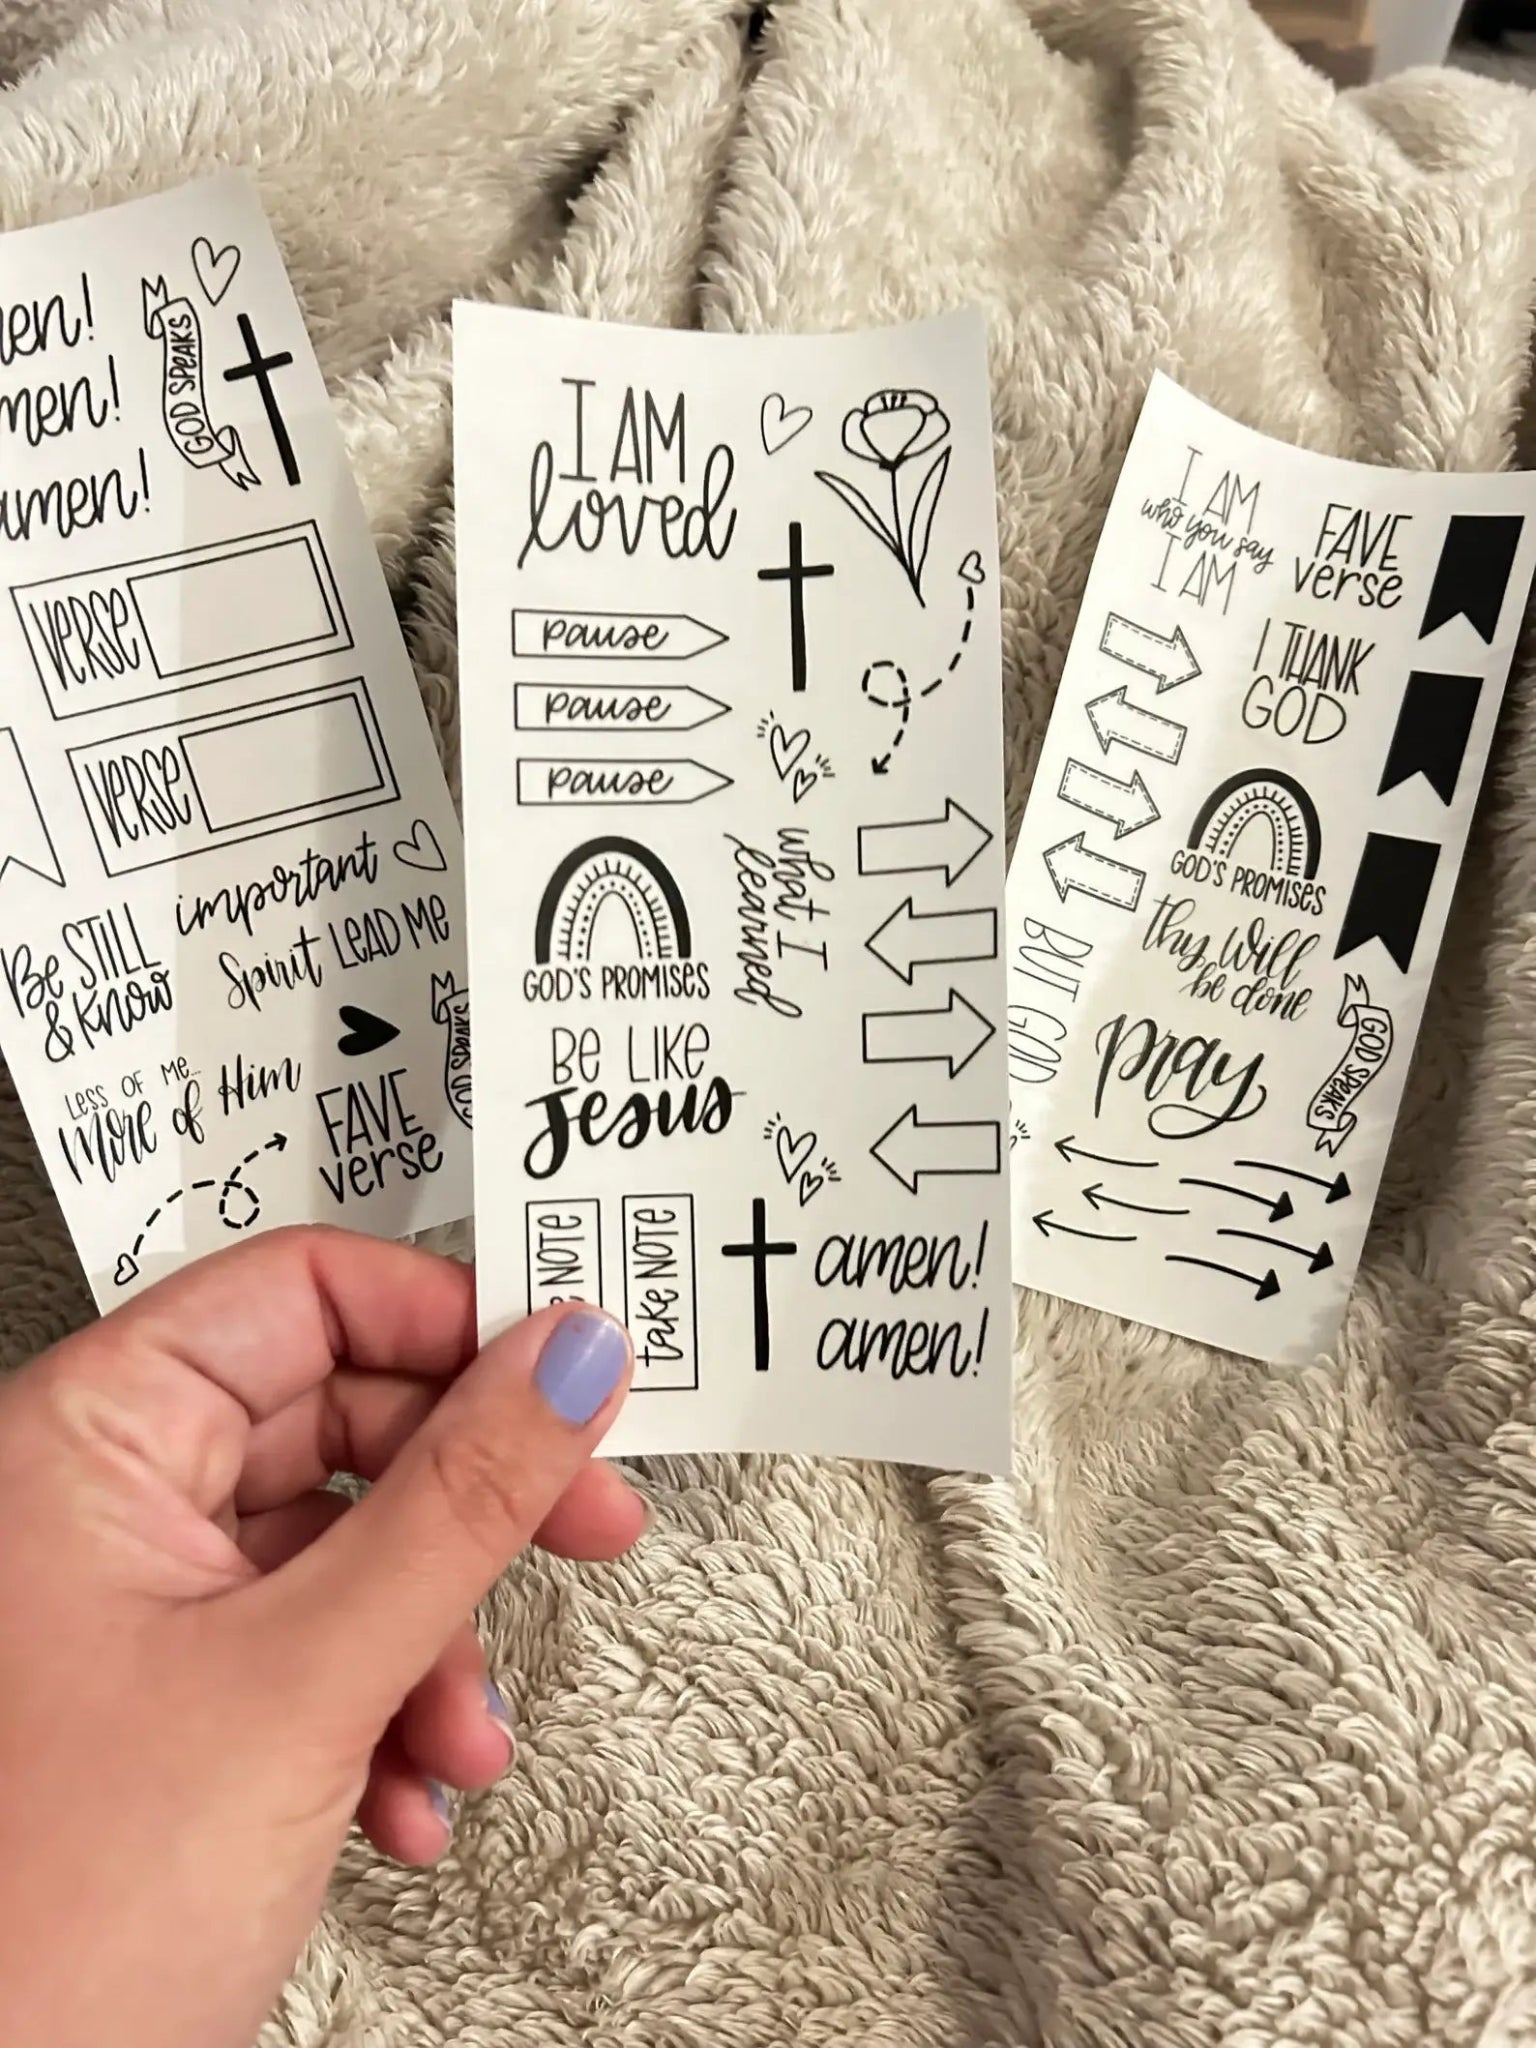 amen!
GOD SPEAKS
VERSE
VERSE
important
Be STILL
& Know
Spirit LEAD ME
GOD SPEAKS
LESS OF ME...
More of Him
FAVE
verse
I AM
loved
pause
pause
pause
what I
learned
GOD'S PROMISES
BE LIKE
Jesus
NOTE
take NOTE
amen!
amen!
I AM
who you say
I AM
FAVE
verse
I THANK
GOD
GOD'S PROMISES
thy will
be done
BUT GOD
pray
GOD SPEAKS